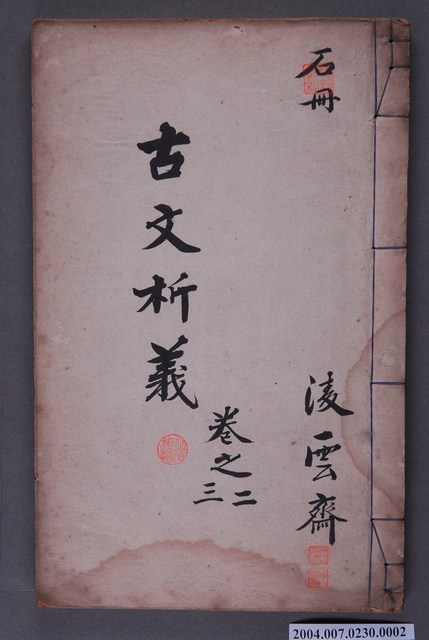 石冊
凌雲齋
古文析義
卷之
二
三
2004.007.0230.0002